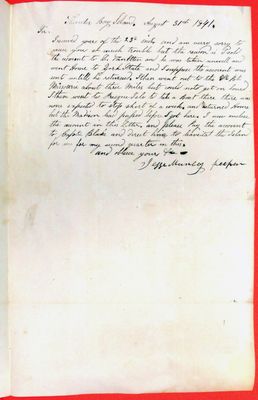 Thunder Bay Island, August 31st 1841.
Sir.
I received yours of the 23d inst. and am very sorry to
give you so much trouble but the reason is I sold
the amount to the and he was taken unwell and
went home to York State and I suppose the amount was
sent untill he returned I then went out to the
Missouri about three Miles but could not get on board
I then went to Presque Isle to take a Boat there there was
none expected to stop short of a week, and returned Home
but the Madison had passed before I got here. I now enclose
the amount in this letter, and please Pay the account
to Blake and direct him to the
for me for my second quarter in this.
and oblige yours &c
Jesse Muncey keeper